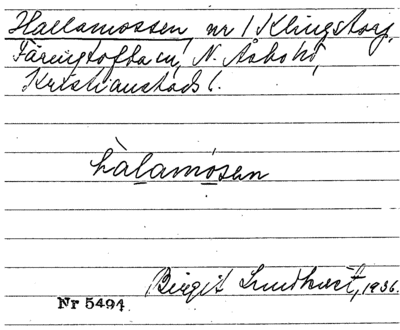 Hallamossen, nr 1 Klingstorp,
Färingtofta sn, N. Åsbo hd,
Kristianstads l.
hàlamósen
Birgit Lundkvist, 1936.
Nr 5494.